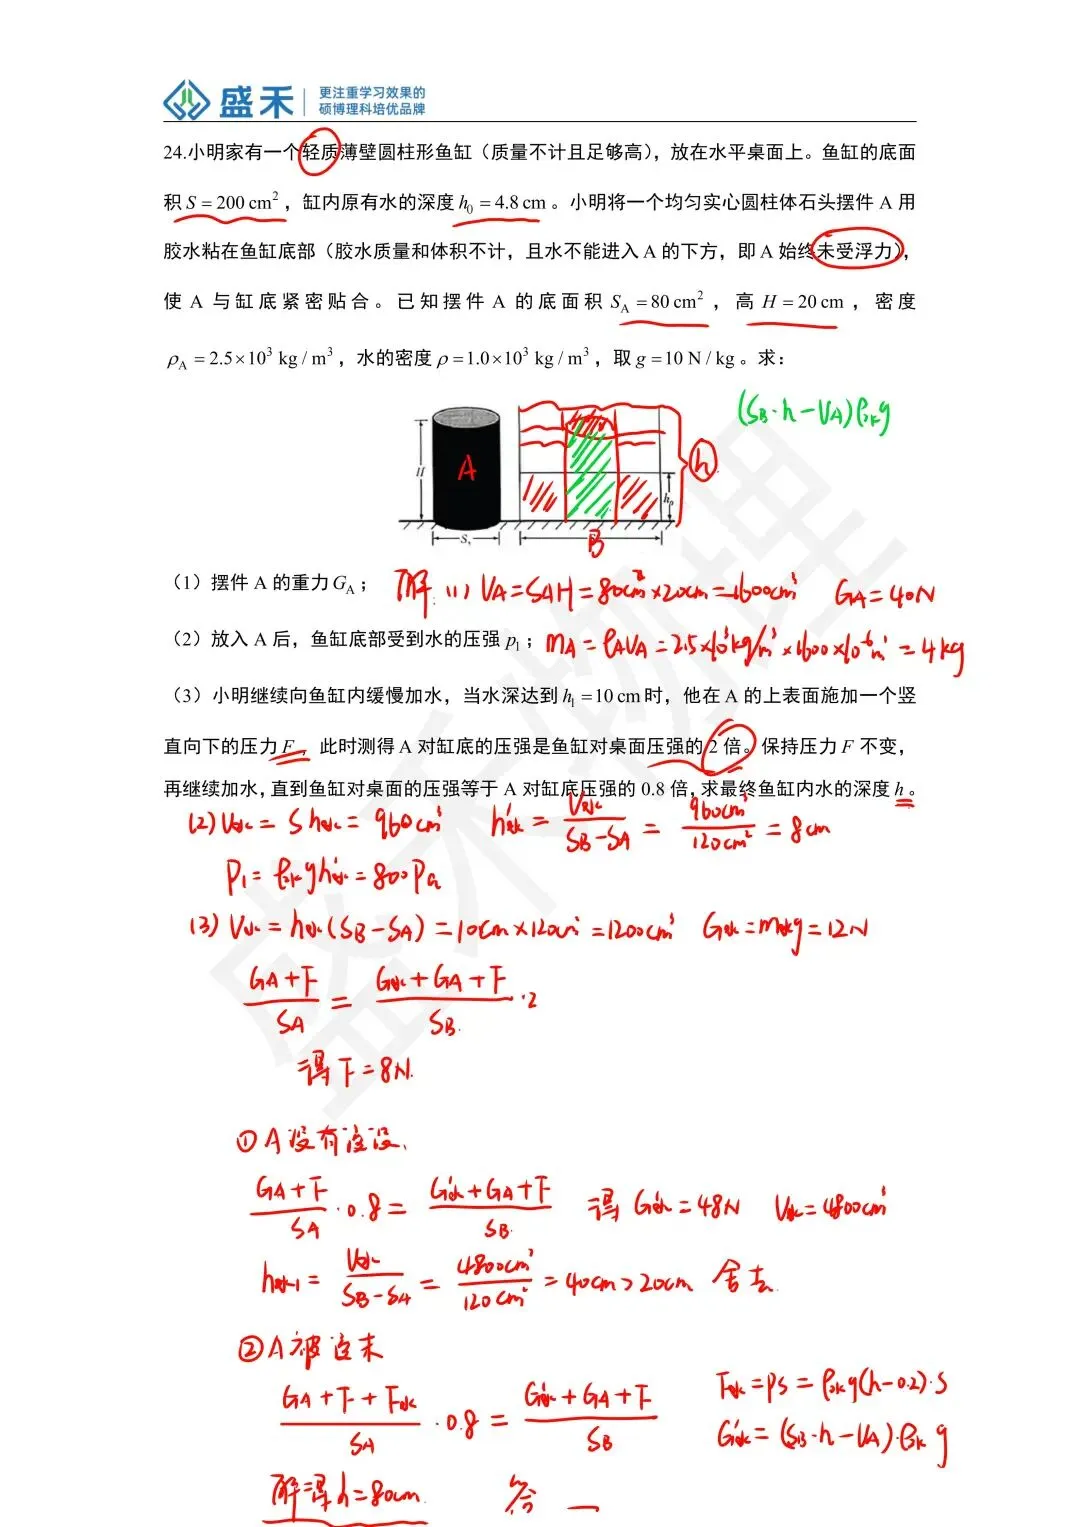 盛禾 更注重学习效果的
硕博理科培优品牌
24.小明家有一个轻质薄壁圆柱形鱼缸（质量不计且足够高），放在水平桌面上。鱼缸的底面
积 S = 200 cm²，缸内原有水的深度 h₀ = 4.8 cm。小明将一个均匀实心圆柱体石头摆件 A 用
胶水粘在鱼缸底部（胶水质量和体积不计，且水不能进入 A 的下方，即 A 始终未受浮力），
使 A 与缸底紧密贴合。已知摆件 A 的底面积 S_A = 80 cm²，高 H = 20 cm，密度
ρ_A = 2.5×10³ kg / m³，水的密度 ρ = 1.0×10³ kg / m³，取 g = 10 N / kg。求：
(S_B·h－V_A)ρ水g
A
H
h₀
h
B
（1）摆件 A 的重力 G_A；
解:(1) V_A = S_A H = 80cm²×20cm = 1600cm³ G_A = 40N
（2）放入 A 后，鱼缸底部受到水的压强 p₁；
m_A = ρ_A V_A = 2.5×10³kg/m³×1600×10⁻⁶m³ = 4kg
（3）小明继续向鱼缸内缓慢加水，当水深达到 h₁ = 10 cm 时，他在 A 的上表面施加一个竖
直向下的压力 F，此时测得 A 对缸底的压强是鱼缸对桌面压强的 2 倍。保持压力 F 不变，
再继续加水，直到鱼缸对桌面的压强等于 A 对缸底压强的 0.8 倍，求最终鱼缸内水的深度 h。
(2) V水 = S h水 = 960cm³ h'水 = V水/(S_B－S_A) = 960cm³/120cm² = 8cm
P₁ = ρ水gh'水 = 800Pa
(3) V水 = h水(S_B－S_A) = 10cm×120cm² = 1200cm³ G水 = m水g = 12N
(G_A+F)/S_A = (G水+G_A+F)/S_B ·2
得 F = 8N.
① A 没有淹没
(G_A+F)/S_A ·0.8 = (G'水+G_A+F)/S_B 得 G'水 = 48N V水 = 4800cm³
h水1 = V水/(S_B－S_A) = 4800cm³/120cm² = 40cm > 20cm 舍去
② A 被淹没
(G_A+F+F水)/S_A ·0.8 = (G'水+G_A+F)/S_B
F水 = PS = ρ水g(h－0.2)·S
G'水 = (S_B·h－V_A)·ρ水g
解得 h = 80cm 答 —
盛禾物理